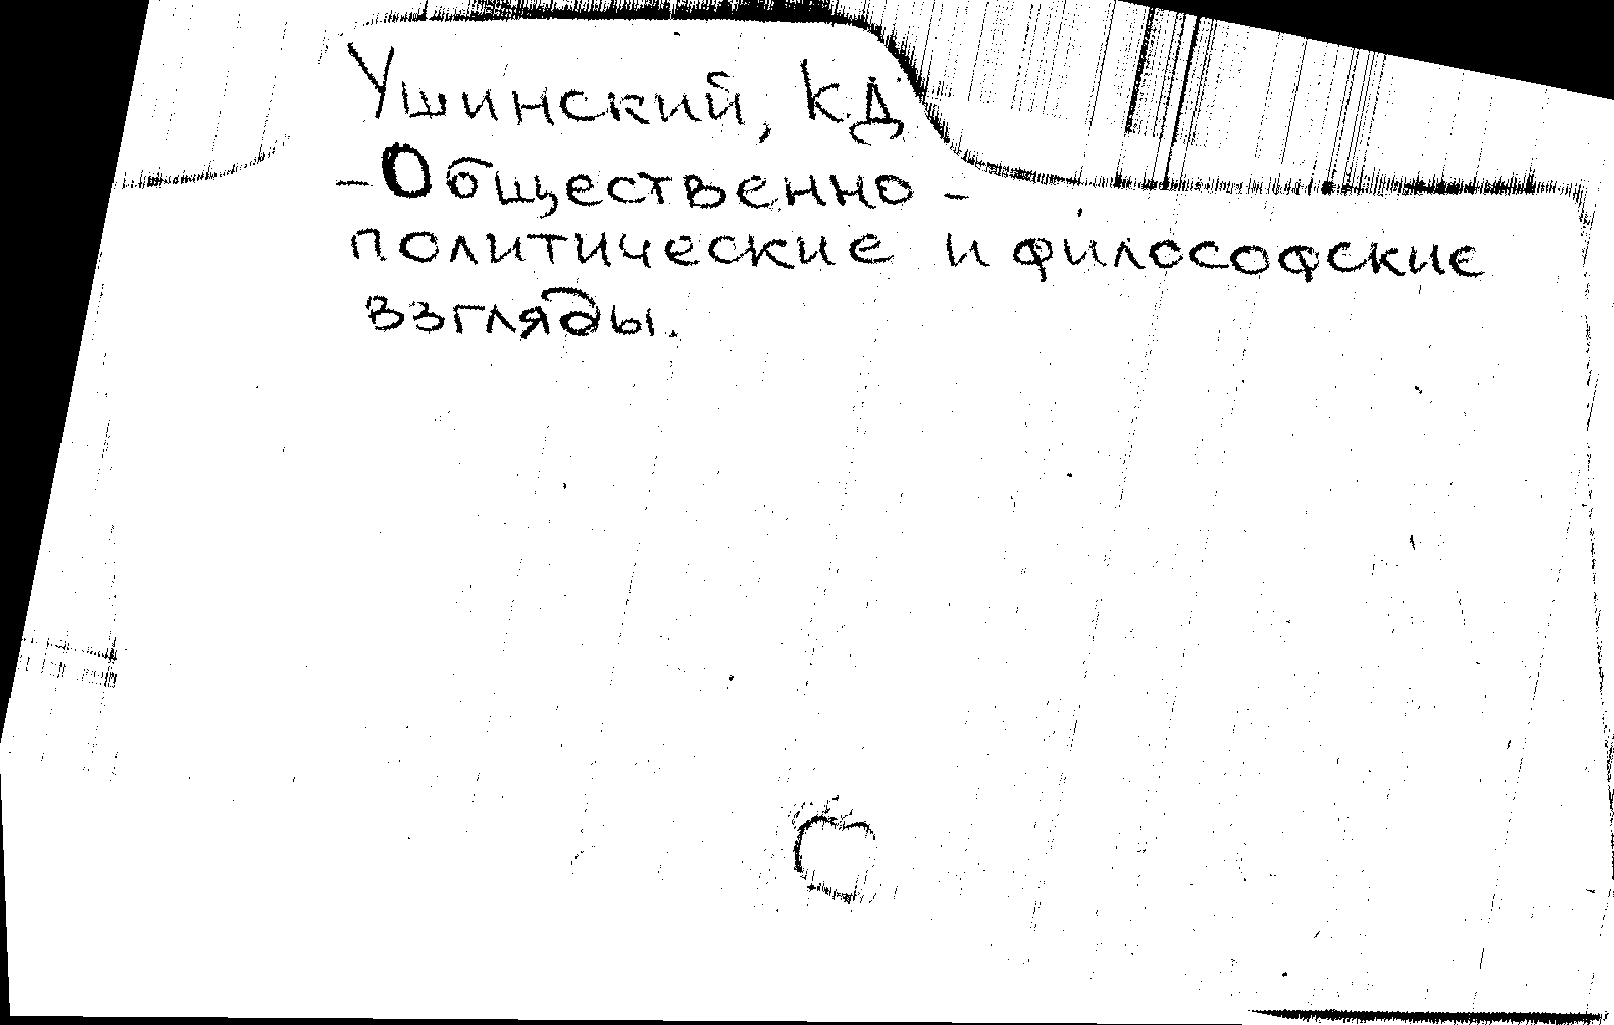 Ушинский, К.Д
-Общественно-
политические и философские
взгляды.